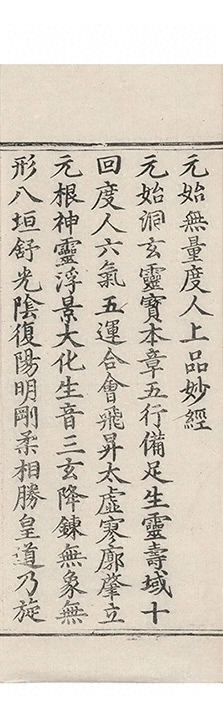 元始無量度人上品妙經
元始洞玄靈寶本章五行備足生靈壽域十
回度人六氣五運合會飛昇太虛寥廓肇立
元根神靈浮景大化生音三玄降鍊無象無
形八垣舒光陰復陽明剛柔相勝皇道乃旋